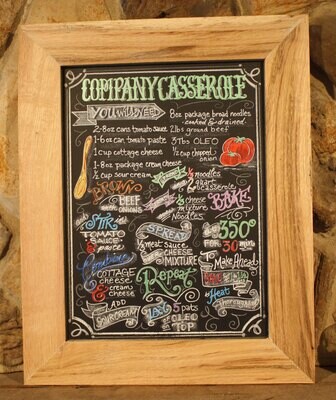 COMPANY CASSEROLE
YOU WILL NEED
8oz package broad noodles
cooked & drained
2-8oz cans tomato sauce
2 lbs ground beef
1-6oz can, tomato paste
3 Tbs OLEO
1 cup cottage cheese
1/2 cup chopped
onion
1-8oz package cream cheese
1/2 cup sour cream
BROWN
BEEF
ONIONS
1/2 noodles
quart
casserole
BAKE
1/2 cheese
mixture
Noodles
STIR
TOMATO
SAUCE
SPREAD
meat sauce
CHEESE
MIXTURE
350°
FOR 30 mins
Combine
COTTAGE
cheese
&
cream
cheese
Repeat
To Make Ahead
Heat
ADD
SOUR CREAM
LAY 3 pats
of OLEO
TOP